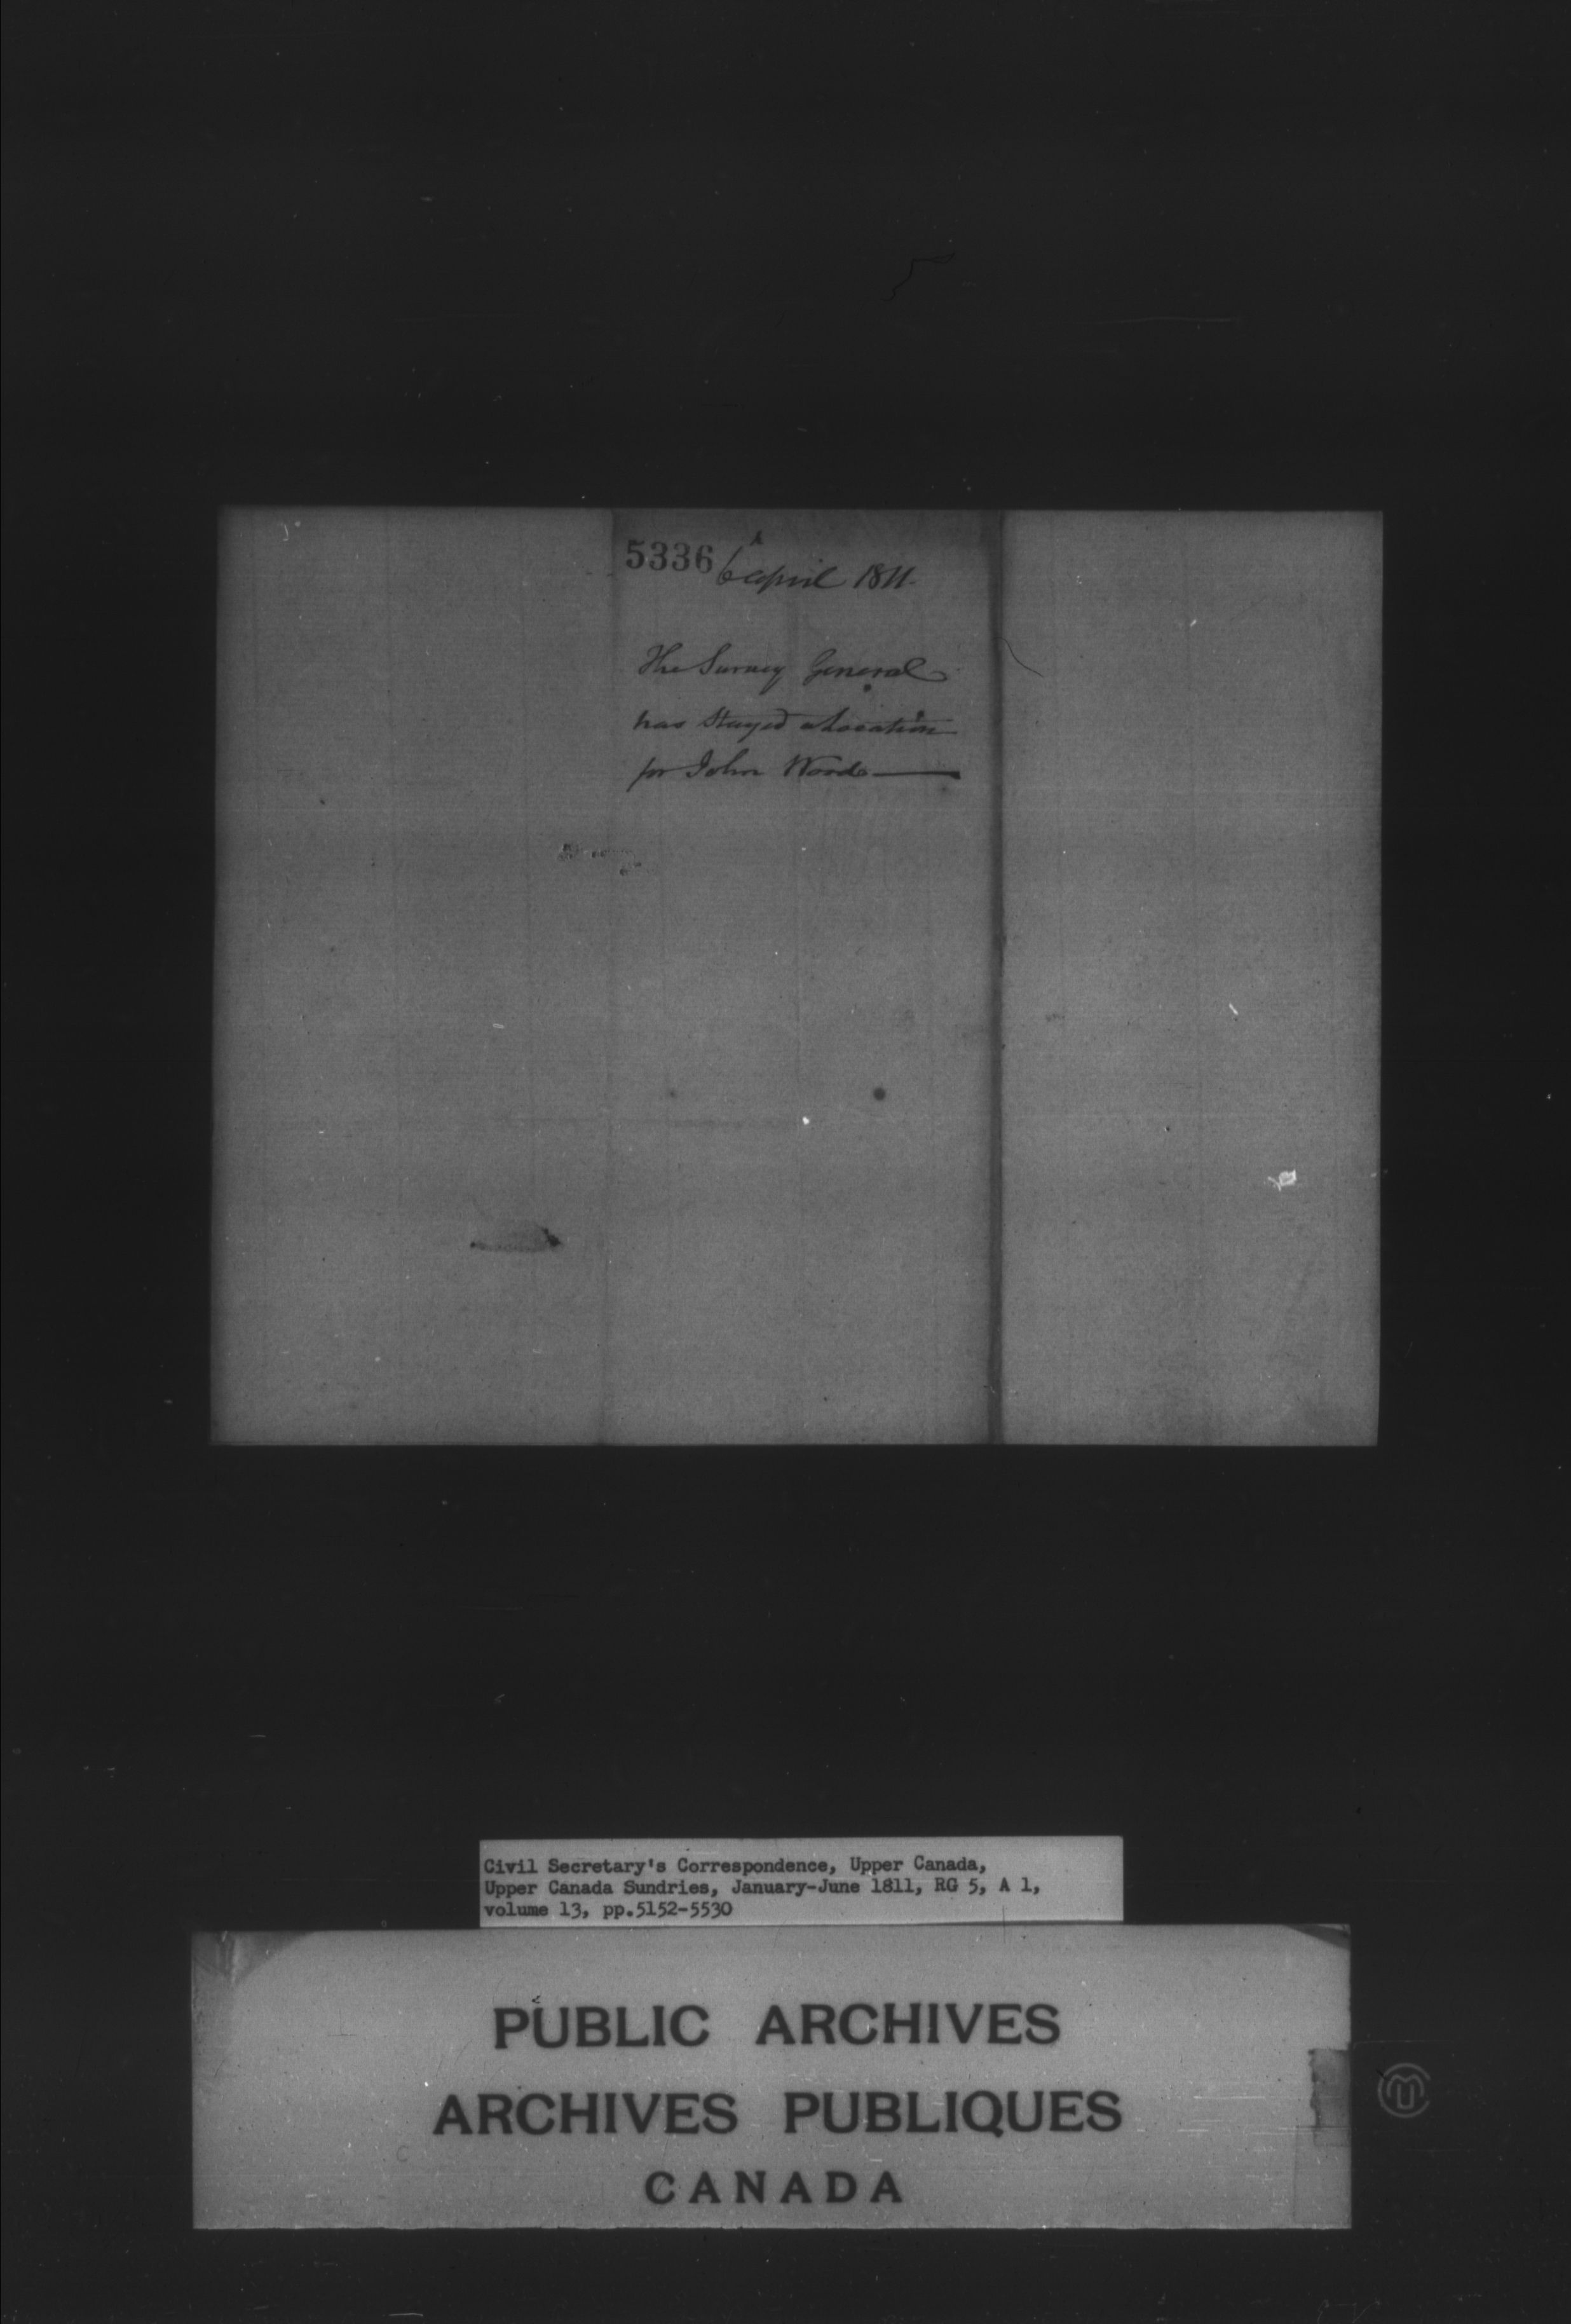 5336
6 April 1811.
The Survey General
has Stayed a Location
for John Woods
Civil Secretary's Correspondence, Upper Canada,
Upper Canada Sundries, January-June 1811, RG 5, A 1,
volume 13, pp.5152-5530
PUBLIC ARCHIVES
ARCHIVES PUBLIQUES
CANADA